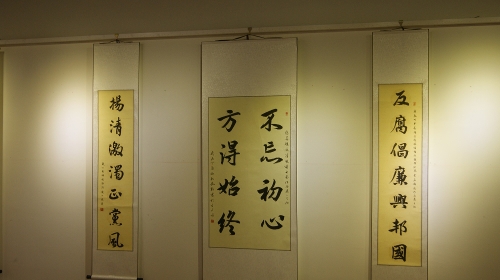 反腐倡廉興邦國
不忘初心
方得始終
揚清激濁正黨風